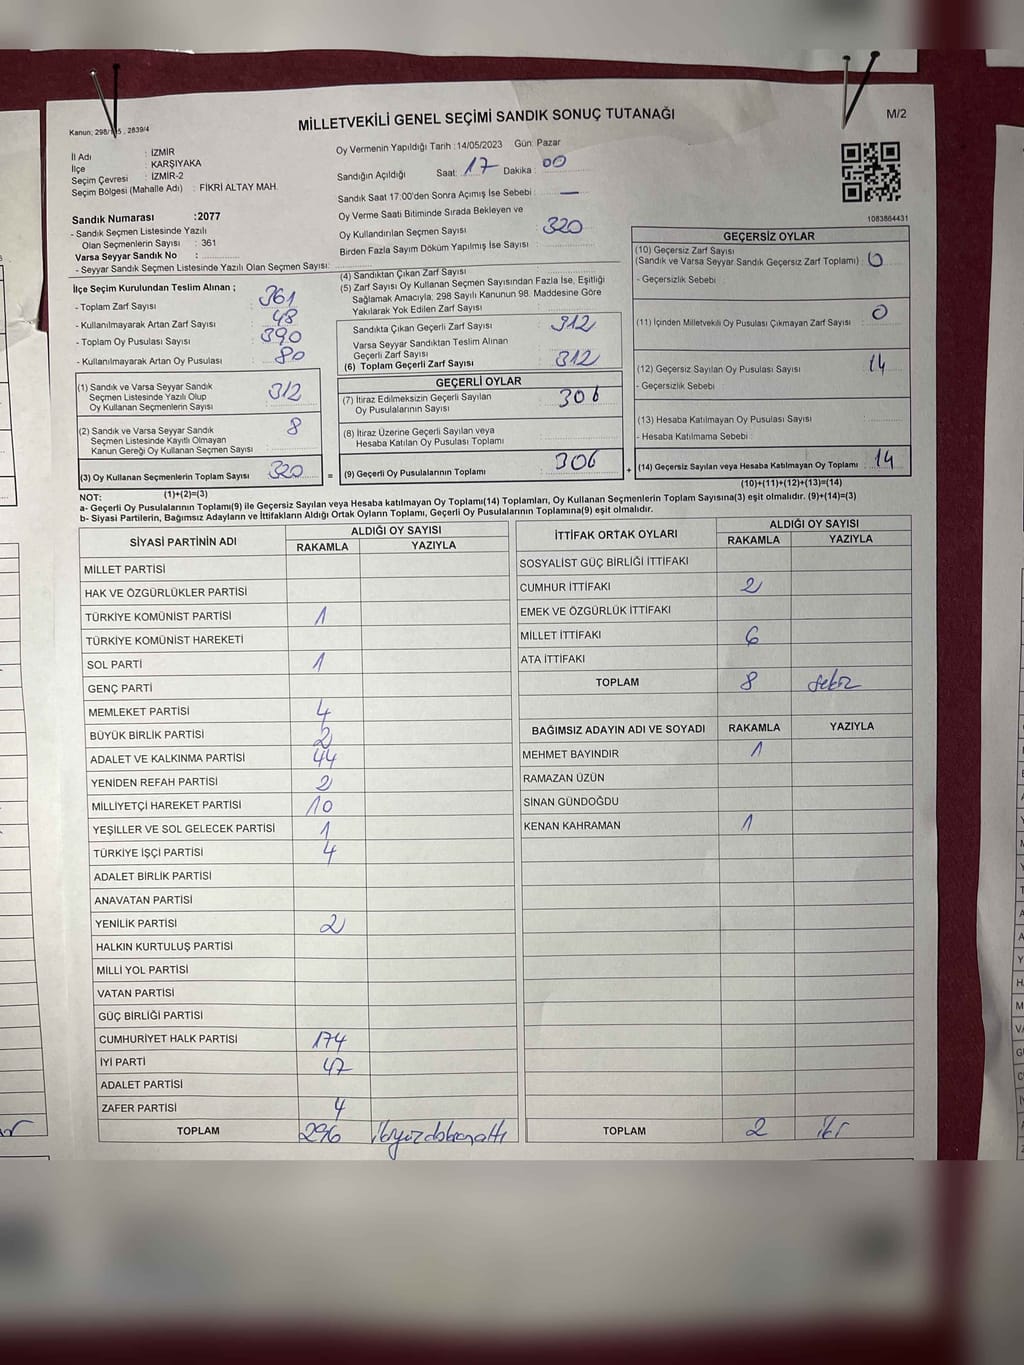 Kanun; 298/105 , 2839/4
MİLLETVEKİLİ GENEL SEÇİMİ SANDIK SONUÇ TUTANAĞI
M/2
İl Adı : İZMİR
İlçe : KARŞIYAKA
Seçim Çevresi : İZMİR-2
Seçim Bölgesi (Mahalle Adı) : FİKRİ ALTAY MAH.
Sandık Numarası :2077
- Sandık Seçmen Listesinde Yazılı
Olan Seçmenlerin Sayısı : 361
Varsa Seyyar Sandık No :
- Seyyar Sandık Seçmen Listesinde Yazılı Olan Seçmen Sayısı:
Oy Vermenin Yapıldığı Tarih : 14/05/2023 Gün: Pazar
Sandığın Açıldığı Saat: 17 Dakika : 00
Sandık Saat 17:00'den Sonra Açımış İse Sebebi : —
Oy Verme Saati Bitiminde Sırada Bekleyen ve
Oy Kullandırılan Seçmen Sayısı : 320
Birden Fazla Sayım Döküm Yapılmış İse Sayısı :
1083864431
İlçe Seçim Kurulundan Teslim Alınan ;
- Toplam Zarf Sayısı : 361
- Kullanılmayarak Artan Zarf Sayısı : 48
- Toplam Oy Pusulası Sayısı : 390
- Kullanılmayarak Artan Oy Pusulası : 80
(1) Sandık ve Varsa Seyyar Sandık
Seçmen Listesinde Yazılı Olup
Oy Kullanan Seçmenlerin Sayısı : 312
(2) Sandık ve Varsa Seyyar Sandık
Seçmen Listesinde Kayıtlı Olmayan
Kanun Gereği Oy Kullanan Seçmen Sayısı : 8
(3) Oy Kullanan Seçmenlerin Toplam Sayısı : 320
(1)+(2)=(3)
(4) Sandıktan Çıkan Zarf Sayısı :
(5) Zarf Sayısı Oy Kullanan Seçmen Sayısından Fazla İse, Eşitliği
Sağlamak Amacıyla, 298 Sayılı Kanunun 98. Maddesine Göre
Yakılarak Yok Edilen Zarf Sayısı :
Sandıkta Çıkan Geçerli Zarf Sayısı : 312
Varsa Seyyar Sandıktan Teslim Alınan
Geçerli Zarf Sayısı :
(6) Toplam Geçerli Zarf Sayısı : 312
GEÇERLİ OYLAR
(7) İtiraz Edilmeksizin Geçerli Sayılan
Oy Pusulalarının Sayısı : 306
(8) İtiraz Üzerine Geçerli Sayılan veya
Hesaba Katılan Oy Pusulası Toplamı :
= (9) Geçerli Oy Pusulalarının Toplamı : 306
GEÇERSİZ OYLAR
(10) Geçersiz Zarf Sayısı
(Sandık ve Varsa Seyyar Sandık Geçersiz Zarf Toplamı) : 0
- Geçersizlik Sebebi :
(11) İçinden Milletvekili Oy Pusulası Çıkmayan Zarf Sayısı : 0
(12) Geçersiz Sayılan Oy Pusulası Sayısı : 14
- Geçersizlik Sebebi :
(13) Hesaba Katılmayan Oy Pusulası Sayısı :
- Hesaba Katılmama Sebebi :
+ (14) Geçersiz Sayılan veya Hesaba Katılmayan Oy Toplamı : 14
(10)+(11)+(12)+(13)=(14)
NOT:
a- Geçerli Oy Pusulalarının Toplamı(9) ile Geçersiz Sayılan veya Hesaba katılmayan Oy Toplamı(14) Toplamları, Oy Kullanan Seçmenlerin Toplam Sayısına(3) eşit olmalıdır. (9)+(14)=(3)
b- Siyasi Partilerin, Bağımsız Adayların ve İttifakların Aldığı Ortak Oyların Toplamı, Geçerli Oy Pusulalarının Toplamına(9) eşit olmalıdır.
SİYASİ PARTİNİN ADI ALDIĞI OY SAYISI
RAKAMLA YAZIYLA
MİLLET PARTİSİ
HAK VE ÖZGÜRLÜKLER PARTİSİ
TÜRKİYE KOMÜNİST PARTİSİ 1
TÜRKİYE KOMÜNİST HAREKETİ
SOL PARTİ 1
GENÇ PARTİ
MEMLEKET PARTİSİ 4
BÜYÜK BİRLİK PARTİSİ 2
ADALET VE KALKINMA PARTİSİ 44
YENİDEN REFAH PARTİSİ 2
MİLLİYETÇİ HAREKET PARTİSİ 10
YEŞİLLER VE SOL GELECEK PARTİSİ 1
TÜRKİYE İŞÇİ PARTİSİ 4
ADALET BİRLİK PARTİSİ
ANAVATAN PARTİSİ
YENİLİK PARTİSİ 2
HALKIN KURTULUŞ PARTİSİ
MİLLİ YOL PARTİSİ
VATAN PARTİSİ
GÜÇ BİRLİĞİ PARTİSİ
CUMHURİYET HALK PARTİSİ 174
İYİ PARTİ 47
ADALET PARTİSİ
ZAFER PARTİSİ 4
TOPLAM 296 ikiyüzdoksanaltı
İTTİFAK ORTAK OYLARI ALDIĞI OY SAYISI
RAKAMLA YAZIYLA
SOSYALİST GÜÇ BİRLİĞİ İTTİFAKI
CUMHUR İTTİFAKI 2
EMEK VE ÖZGÜRLÜK İTTİFAKI
MİLLET İTTİFAKI 6
ATA İTTİFAKI
TOPLAM 8 sekiz
BAĞIMSIZ ADAYIN ADI VE SOYADI RAKAMLA YAZIYLA
MEHMET BAYINDIR 1
RAMAZAN ÜZÜN
SİNAN GÜNDOĞDU
KENAN KAHRAMAN 1
TOPLAM 2 iki